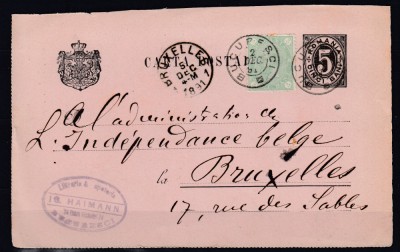 CARTA POSTALA
BRUXELLES
DEC
1891
BUCURESCI
DEC
91
ROMANIA
5
A l'administration de
L'Indépendance belge
la
Bruxelles
17, rue des Sables
IG. HAIMANN
BUCURESCI